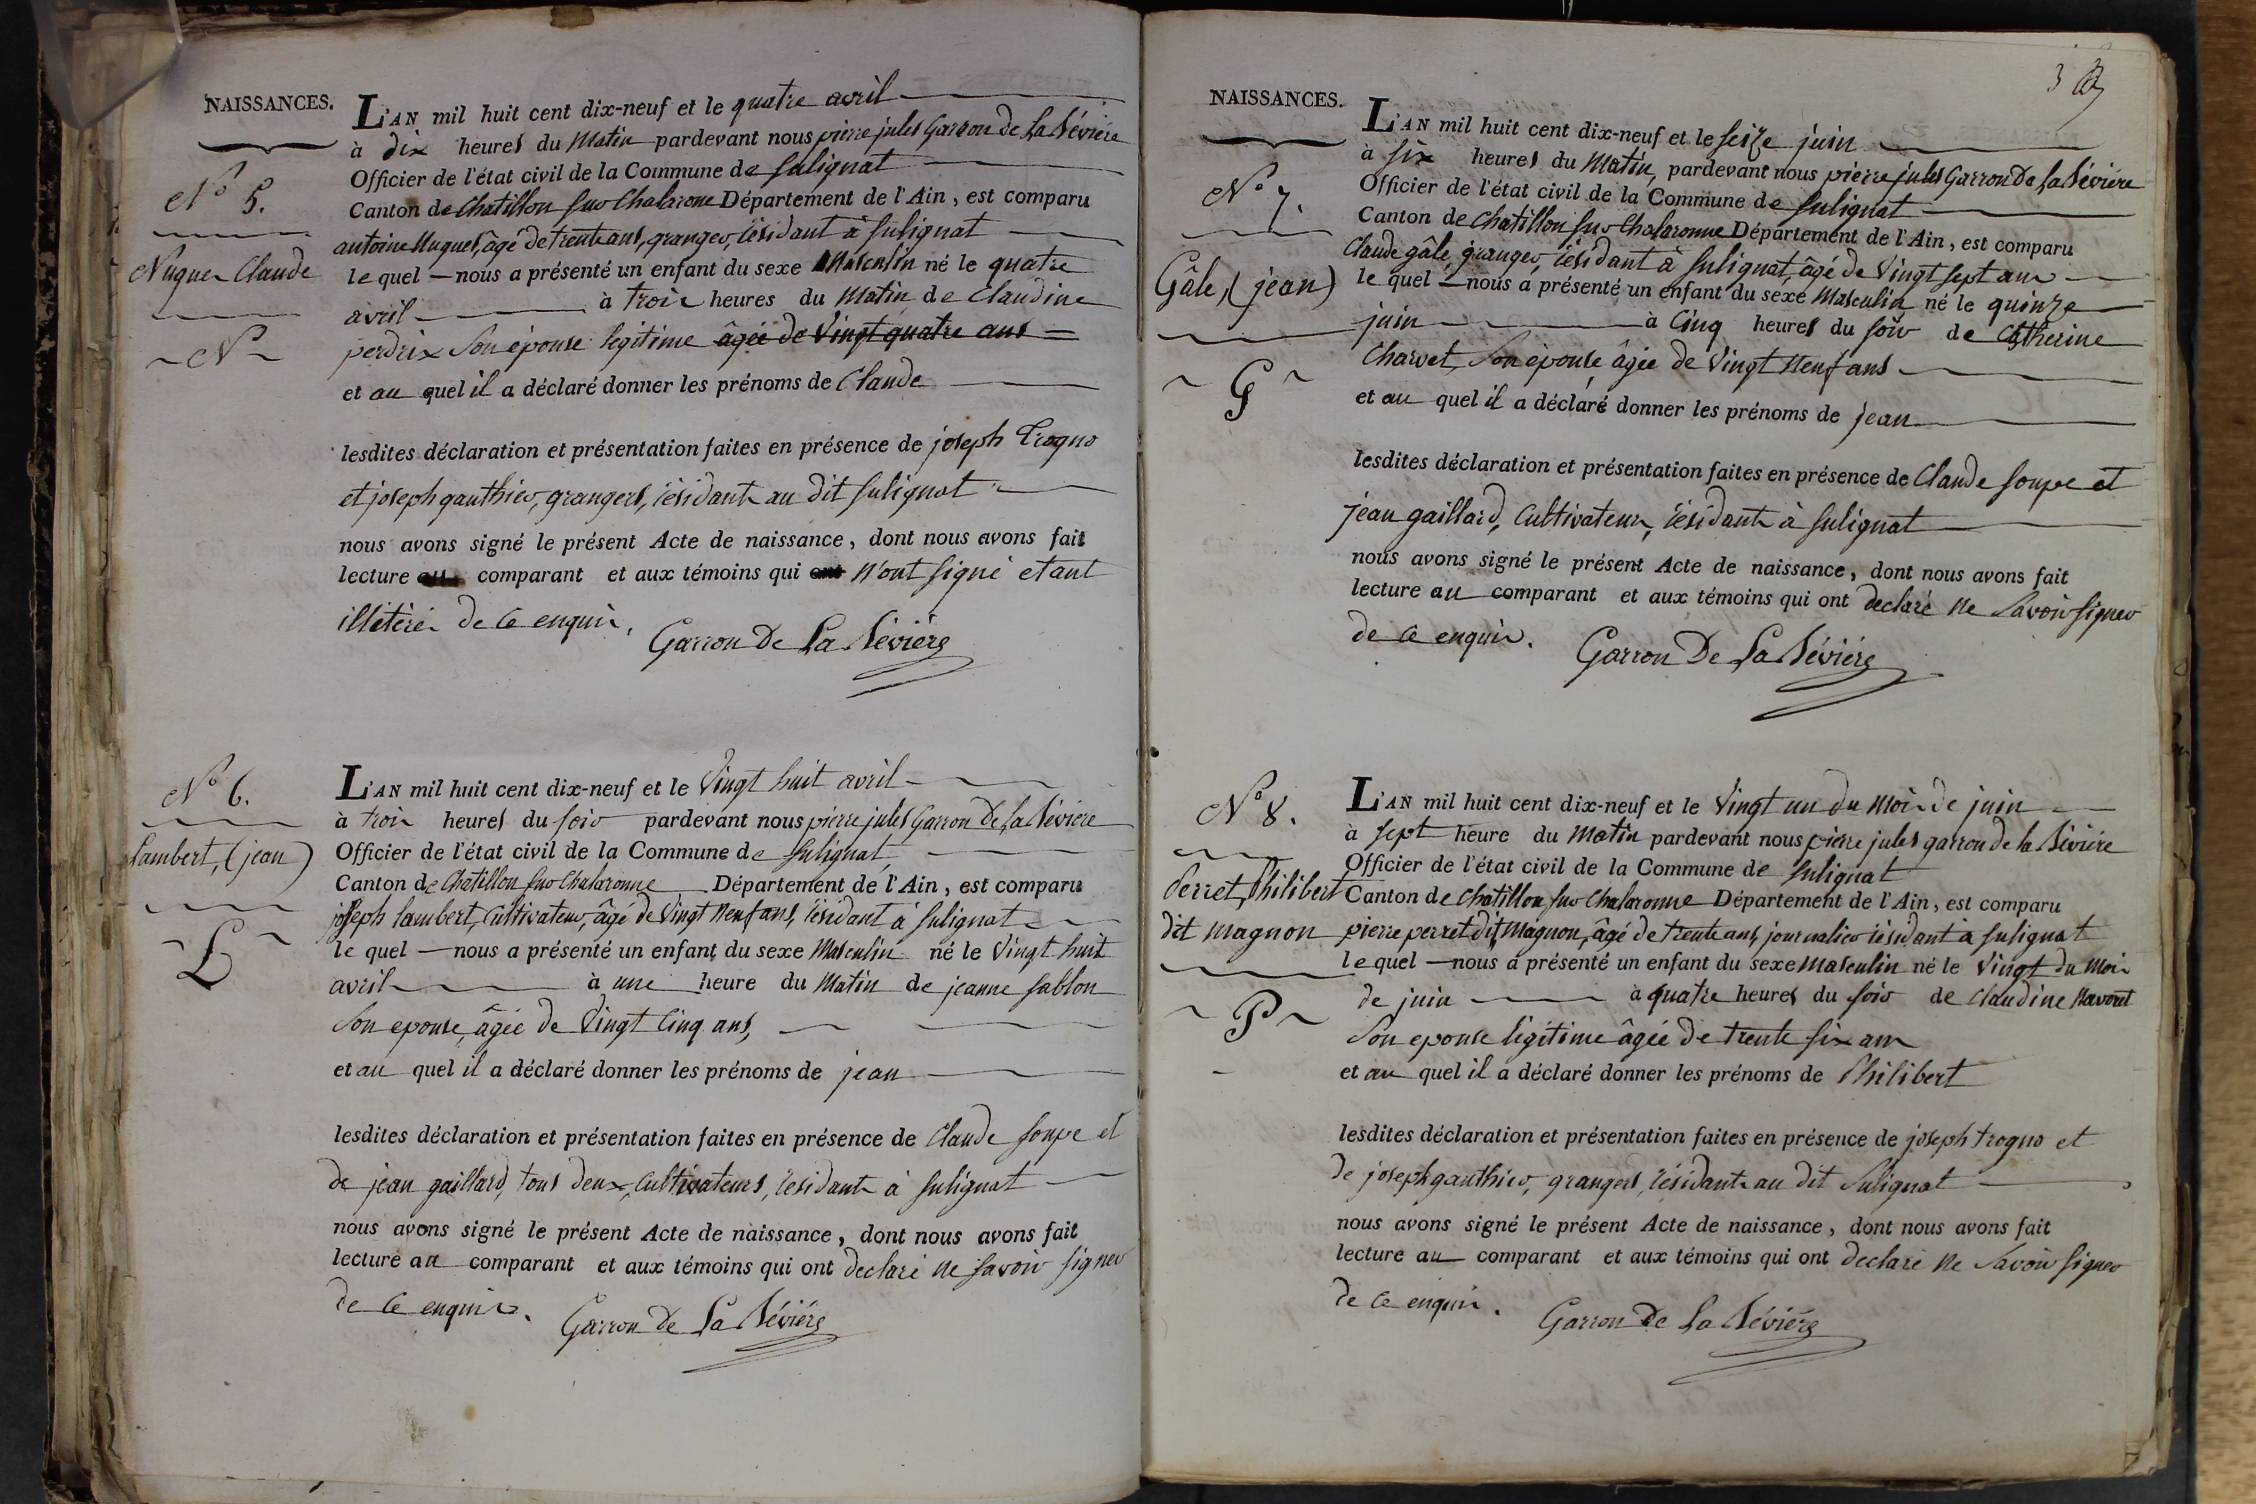 NAISSANCES.
N.o 5.
Nuguet Claude
N
L'AN mil huit cent dix-neuf et le quatre avril
à dix heures du Matin pardevant nous pierre jules Garron de La Béviére
Officier de l'état civil de la Commune de Sulignat
Canton de Chatillon sur Chalaronne Département de l'Ain, est comparu
antoine Nuguet, âgé de trente ans, granger, résidant à Sulignat
le quel nous a présenté un enfant du sexe Masculin né le quatre
avril à trois heures du Matin de Claudine
perdrix Son épouse legitime âgée de vingt quatre ans
et au quel il a déclaré donner les prénoms de Claude
lesdites déclaration et présentation faites en présence de joseph Trogno
et joseph gauthier, grangers, résidants au dit Sulignat
nous avons signé le présent Acte de naissance, dont nous avons fait
lecture au comparant et aux témoins qui ont n'ont signé etant
illitérés de ce enquis.
Garron De La Béviére
N.o 6.
Lambert, (jean)
L
L'AN mil huit cent dix-neuf et le Vingt huit avril
à trois heures du soir pardevant nous pierre jules Garron De La Béviére
Officier de l'état civil de la Commune de Sulignat
Canton de Chatillon sur Chalaronne Département de l'Ain, est comparu
joseph Lambert, Cultivateur, âgé de Vingt Neuf ans, résidant à Sulignat
le quel nous a présenté un enfant du sexe Masculin né le Vingt huit
avril à une heure du Matin de jeanne Sablon
Son epouse, âgée de Vingt Cinq ans,
et au quel il a déclaré donner les prénoms de jean
lesdites déclaration et présentation faites en présence de Claude Soupe et
de jean gaillard, tous deux, Cultivateurs, résidants à Sulignat
nous avons signé le présent Acte de naissance, dont nous avons fait
lecture au comparant et aux témoins qui ont declaré Ne Savoir signer
de Ce enquis.
Garron De La Béviére
3
NAISSANCES.
N.o 7.
Gâle, (jean)
G
L'AN mil huit cent dix-neuf et le Seize juin
à Six heures du Matin, pardevant nous pierre jules Garron De La Béviére
Officier de l'état civil de la Commune de Sulignat
Canton de Chatillon sur Chalaronne Département de l'Ain, est comparu
Claude gâle granger, résidant à Sulignat, âgé de Vingt Sept ans
le quel nous a présenté un enfant du sexe Masculin né le quinze
juin à Cinq heures du soir de Catherine
Charvet, Son épouse, âgée de Vingt Neuf ans
et au quel il a déclaré donner les prénoms de jean
lesdites déclaration et présentation faites en présence de Claude Soupe et
jean gaillard, Cultivateurs, résidants à Sulignat
nous avons signé le présent Acte de naissance, dont nous avons fait
lecture au comparant et aux témoins qui ont declaré Ne Savoir Signer
de Ce enquis.
Garron De La Béviére
N.o 8.
Perret, Philibert
dit Magnon
P
L'AN mil huit cent dix-neuf et le Vingt un du Mois de juin
à sept heure du Matin pardevant nous pierre jules garron de la Béviére
Officier de l'état civil de la Commune de Sulignat
Canton de Chatillon sur Chalaronne Département de l'Ain, est comparu
pierre perret dit Magnon, âgé de trente ans, journalier résidant à Sulignat
le quel nous a présenté un enfant du sexe Masculin né le Vingt du Mois
de juin à quatre heures du soir de Claudine Navout
Son epouse légitime âgée de trente Six ans
et au quel il a déclaré donner les prénoms de Philibert
lesdites déclaration et présentation faites en présence de joseph trogno et
de joseph gauthier, grangers, résidants au dit Sulignat
nous avons signé le présent Acte de naissance, dont nous avons fait
lecture au comparant et aux témoins qui ont declaré Ne Savoir Signer
de Ce enquis.
Garron De La Béviére